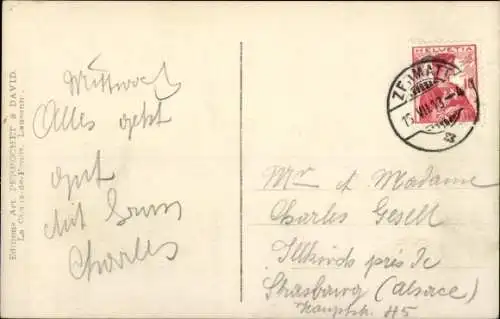 Mittwoch
Alles geht
gut
Mit Gruss
Charles
Editions Art. PERROCHET & DAVID.
La Chaux-de-Fonds, Lausanne.
HELVETIA
ZERMATT
Mr et Madame
Charles Gesell
Illkirch près de
Strasbourg (Alsace)
Hauptstr. 45